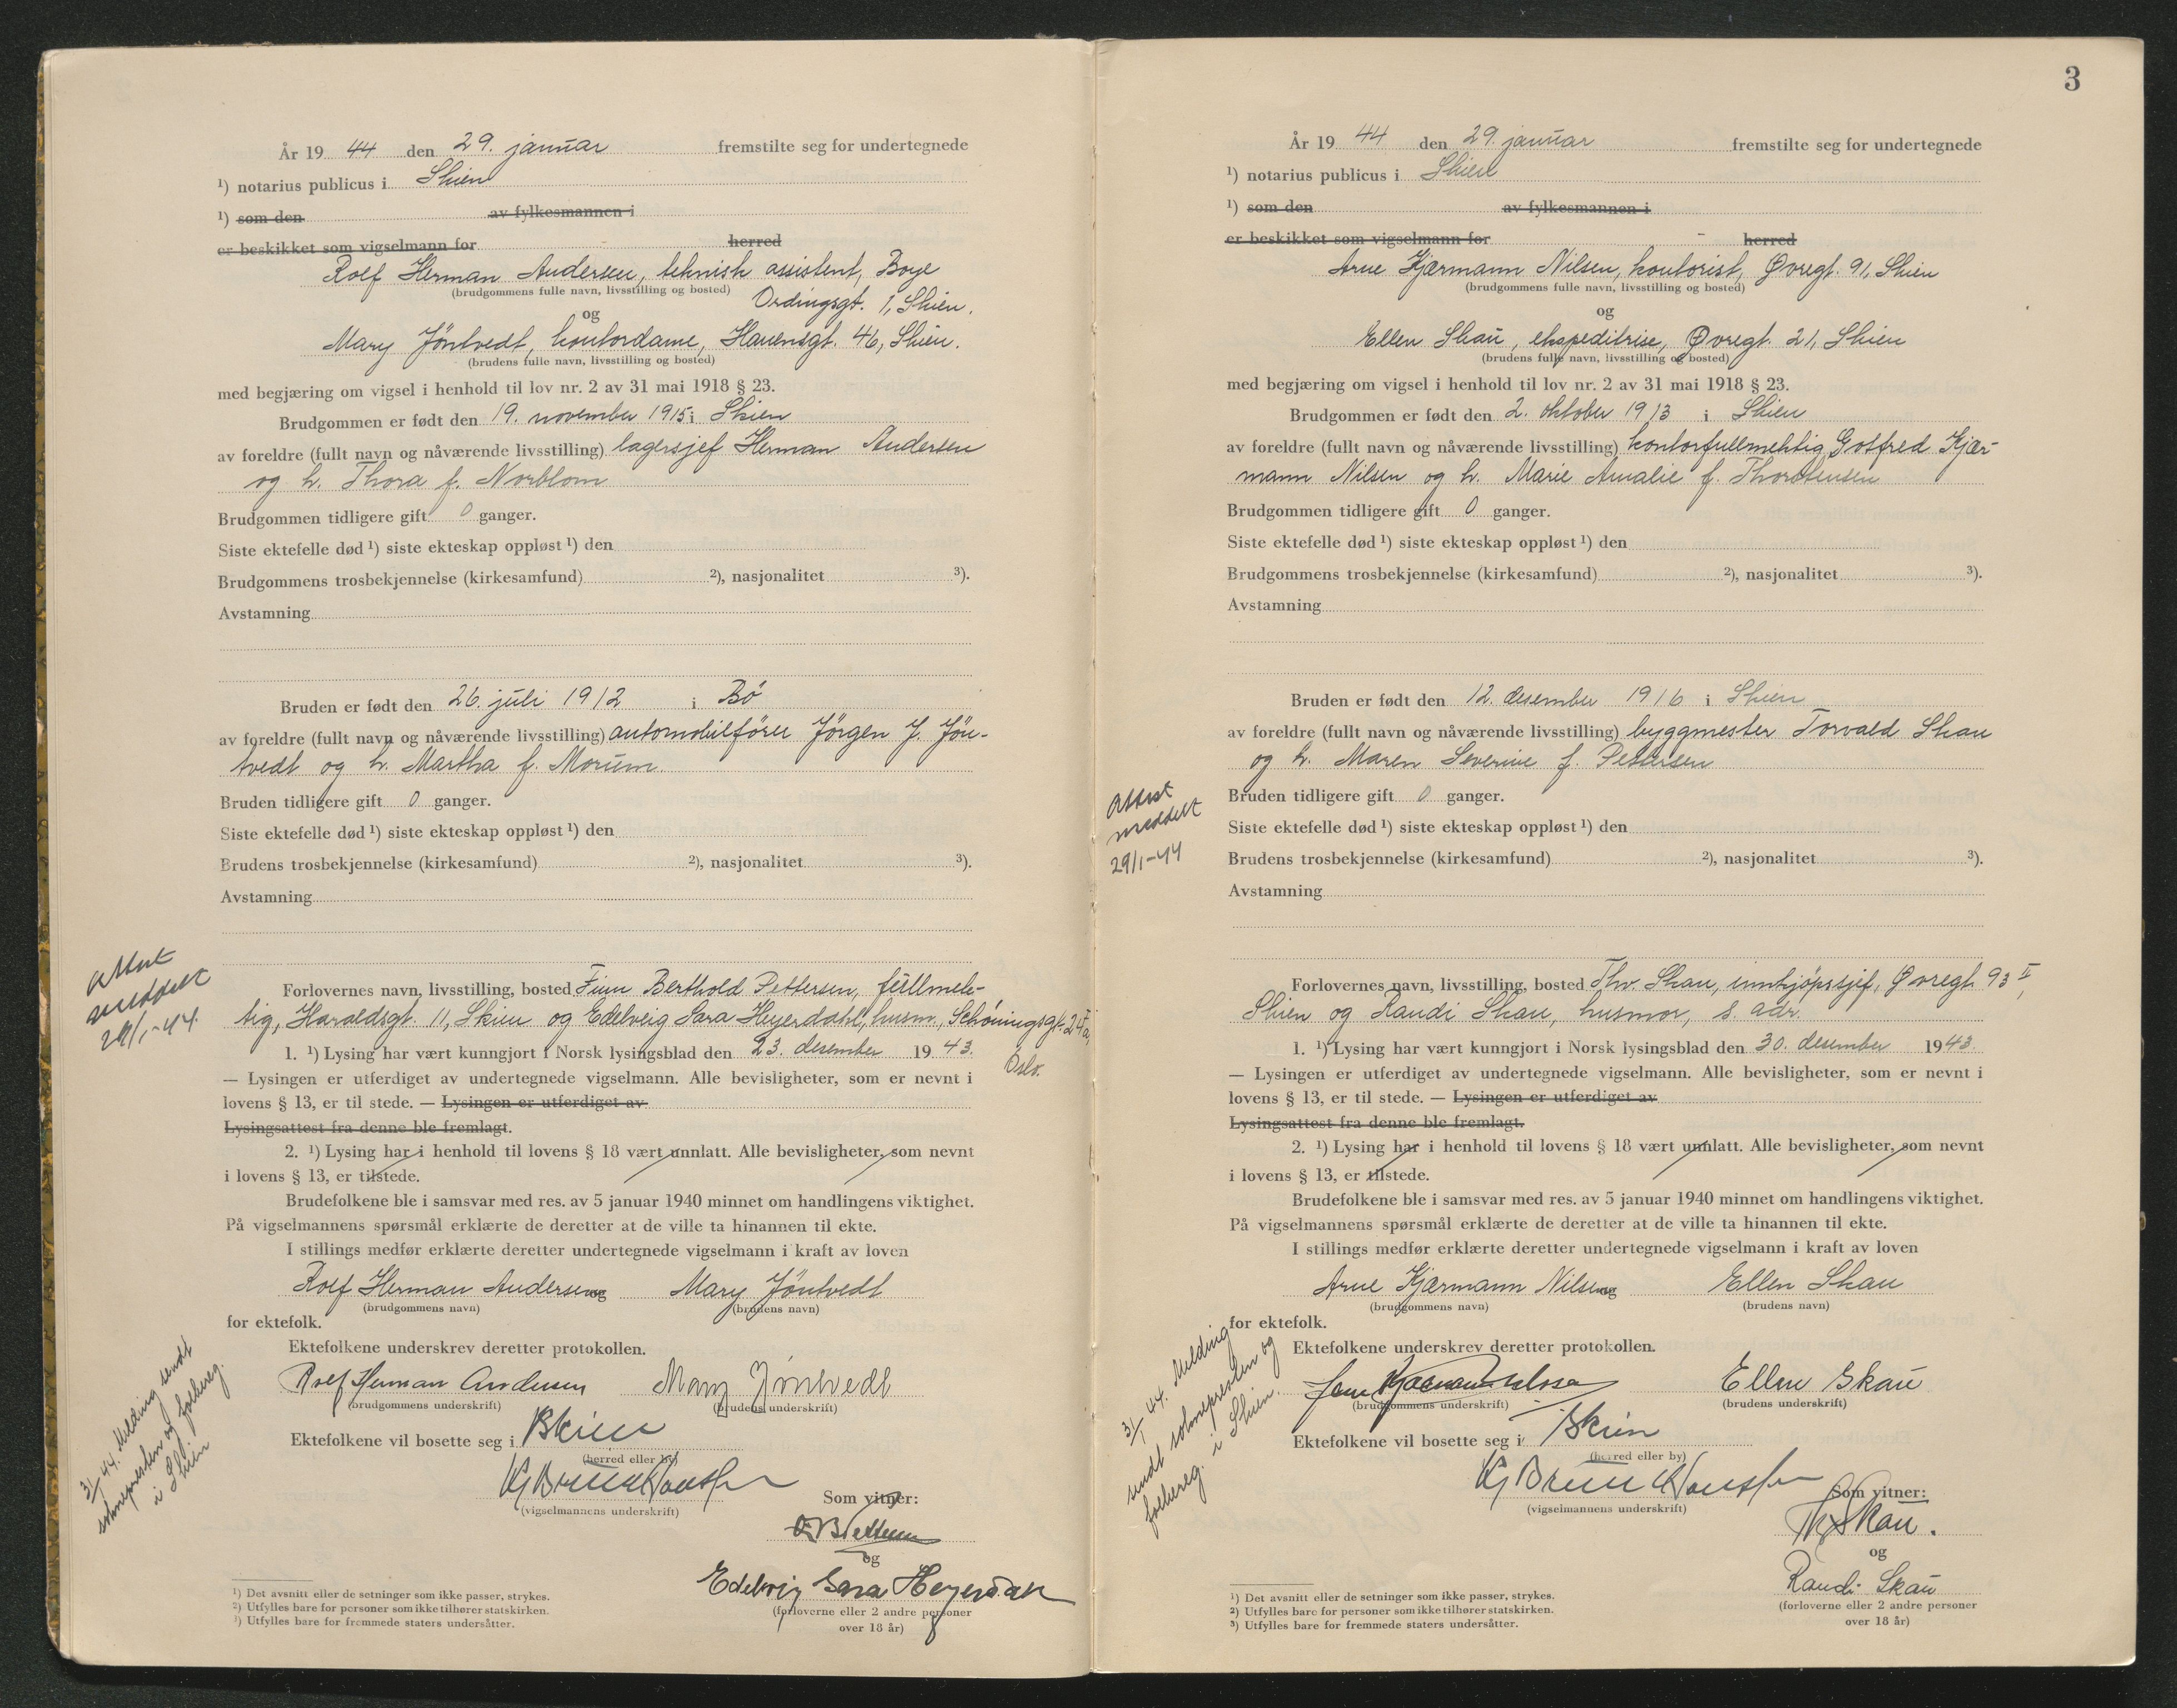 År 19 44 den 29. januar fremstilte seg for undertegnede
¹) notarius publicus i Skien
¹) som den av fylkesmannen i
er beskikket som vigselmann for herred
Rolf Herman Andersen, teknisk assistent, Boye
(brudgommens fulle navn, livsstilling og bosted)
Ordingsgt. 1, Skien.
og
Mary Jöntvedt, kontordame, Havensgt. 46, Skien.
(brudens fulle navn, livsstilling og bosted)
med begjæring om vigsel i henhold til lov nr. 2 av 31 mai 1918 § 23.
Brudgommen er født den 19. november 1915 i Skien
av foreldre (fullt navn og nåværende livsstilling) lagersjef Herman Andersen
og h. Thora f. Norblom
Brudgommen tidligere gift 0 ganger.
Siste ektefelle død ¹) siste ekteskap oppløst ¹) den
Brudgommens trosbekjennelse (kirkesamfund) ²), nasjonalitet ³).
Avstamning
Bruden er født den 26. juli 1912 i Bö
av foreldre (fullt navn og nåværende livsstilling) automobilförer Jörgen J. Jön-
tvedt og h. Martha f. Morum
Bruden tidligere gift 0 ganger.
Siste ektefelle død ¹) siste ekteskap oppløst ¹) den
Brudens trosbekjennelse (kirkesamfund) ²), nasjonalitet ³).
Avstamning
Attest
meddelt
29/1-44.
Forlovernes navn, livsstilling, bosted Finn Berthold Pettersen, fullmek-
tig, Haraldsgt. 11, Skien og Edelveig Sara Heyerdahl, husm., Schøningsgt. 24 a,
Oslo.
1. ¹) Lysing har vært kunngjort i Norsk lysingsblad den 23. desember 19 43.
— Lysingen er utferdiget av undertegnede vigselmann. Alle bevisligheter, som er nevnt i
lovens § 13, er til stede. — Lysingen er utferdiget av
Lysingsattest fra denne ble fremlagt.
2. ¹) Lysing har i henhold til lovens § 18 vært unnlatt. Alle bevisligheter, som nevnt
i lovens § 13, er tilstede.
Brudefolkene ble i samsvar med res. av 5 januar 1940 minnet om handlingens viktighet.
På vigselmannens spørsmål erklærte de deretter at de ville ta hinannen til ekte.
I stillings medfør erklærte deretter undertegnede vigselmann i kraft av loven
Rolf Herman Andersen og Mary Jöntvedt
(brudgommens navn) (brudens navn)
for ektefolk.
Ektefolkene underskrev deretter protokollen.
Rolf Herman Andersen Mary Jöntvedt
(brudgommens underskrift) (brudens underskrift)
Ektefolkene vil bosette seg i Skien
(herred eller by)
(vigselmannens underskrift)
31/1 44. Melding sendt
soknepresten og folkereg.
i Skien
Som vitner:
og
Edelveig Sara Heyerdahl
(forloverne eller 2 andre personer
over 18 år)
¹) Det avsnitt eller de setninger som ikke passer, strykes.
²) Utfylles bare for personer som ikke tilhører statskirken.
³) Utfylles bare for fremmede staters undersåtter.
3
År 19 44 den 29. januar fremstilte seg for undertegnede
¹) notarius publicus i Skien
¹) som den av fylkesmannen i
er beskikket som vigselmann for herred
Arne Kjærmann Nilsen, kontorist, Øvregt. 91, Skien
(brudgommens fulle navn, livsstilling og bosted)
og
Ellen Skau, ekspeditrise, Øvregt. 21, Skien
(brudens fulle navn, livsstilling og bosted)
med begjæring om vigsel i henhold til lov nr. 2 av 31 mai 1918 § 23.
Brudgommen er født den 2. oktober 1913 i Skien
av foreldre (fullt navn og nåværende livsstilling) kontorfullmektig Gotfred Kjær-
mann Nilsen og h. Marie Amalie f. Thorstensen
Brudgommen tidligere gift 0 ganger.
Siste ektefelle død ¹) siste ekteskap oppløst ¹) den
Brudgommens trosbekjennelse (kirkesamfund) ²), nasjonalitet ³).
Avstamning
Bruden er født den 12. desember 1916 i Skien
av foreldre (fullt navn og nåværende livsstilling) byggmester Torvald Skau
og h. Maren Severine f. Pettersen
Bruden tidligere gift 0 ganger.
Siste ektefelle død ¹) siste ekteskap oppløst ¹) den
Brudens trosbekjennelse (kirkesamfund) ²), nasjonalitet ³).
Avstamning
Attest
meddelt
29/1-44
Forlovernes navn, livsstilling, bosted Thv. Skau, innkjöpssjef, Øvregt. 93 II,
Skien og Randi Skau, husmor, s. adr.
1. ¹) Lysing har vært kunngjort i Norsk lysingsblad den 30. desember 19 43.
— Lysingen er utferdiget av undertegnede vigselmann. Alle bevisligheter, som er nevnt i
lovens § 13, er til stede. — Lysingen er utferdiget av
Lysingsattest fra denne ble fremlagt.
2. ¹) Lysing har i henhold til lovens § 18 vært unnlatt. Alle bevisligheter, som nevnt
i lovens § 13, er tilstede.
Brudefolkene ble i samsvar med res. av 5 januar 1940 minnet om handlingens viktighet.
På vigselmannens spørsmål erklærte de deretter at de ville ta hinannen til ekte.
I stillings medfør erklærte deretter undertegnede vigselmann i kraft av loven
Arne Kjærmann Nilsen og Ellen Skau
(brudgommens navn) (brudens navn)
for ektefolk.
Ektefolkene underskrev deretter protokollen.
Arne Kjærmann Nilsen Ellen Skau
(brudgommens underskrift) (brudens underskrift)
Ektefolkene vil bosette seg i Skien
(herred eller by)
(vigselmannens underskrift)
31/1 44. Melding
sendt soknepresten og
folkereg. i Skien.
Som vitner:
Th. Skau.
og
Randi Skau
(forloverne eller 2 andre personer
over 18 år)
¹) Det avsnitt eller de setninger som ikke passer, strykes.
²) Utfylles bare for personer som ikke tilhører statskirken.
³) Utfylles bare for fremmede staters undersåtter.